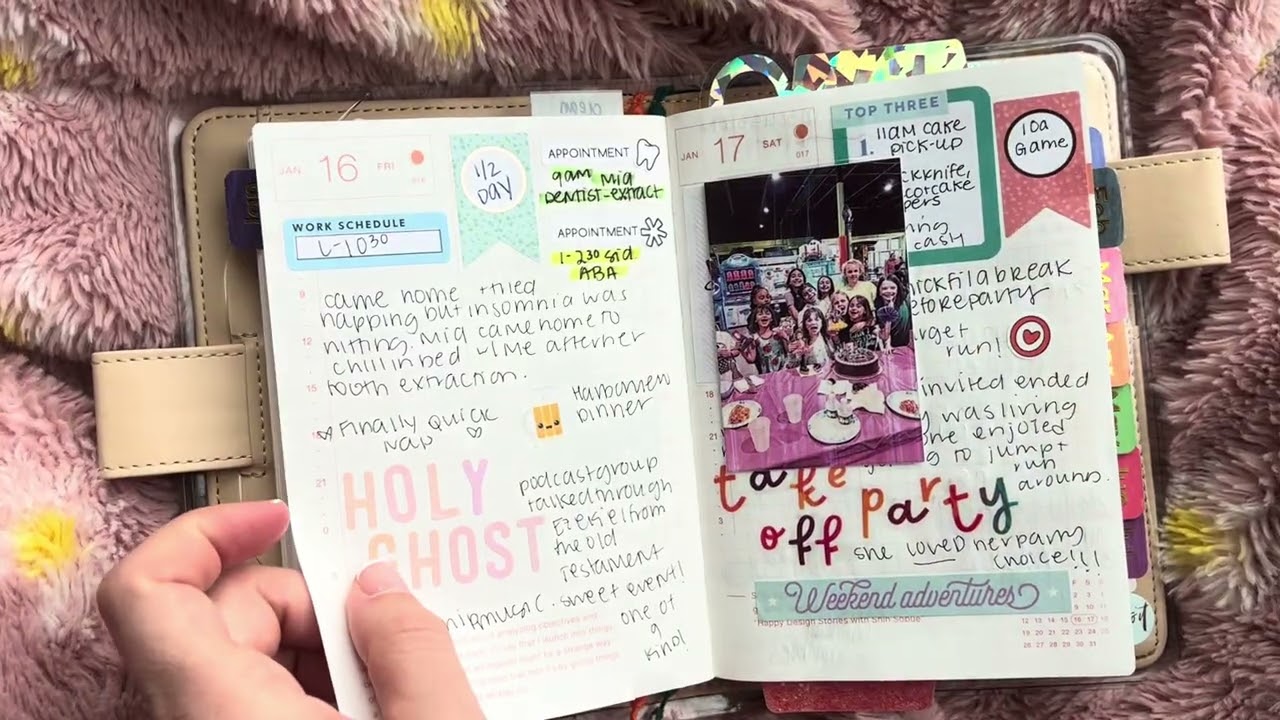 JAN 16 FRI
016
1/2
DAY
APPOINTMENT
9am Mia
Dentist-extract
APPOINTMENT
1-230 Sid
ABA
WORK SCHEDULE
L-1030
came home + tried
napping but insomnia was
hitting. Mia came home to
chill in bed w/ me after her
tooth extraction.
Finally quick
nap
dinner
HOLY
GHOST
podcast group
talked through
Ezekiel from
the old
testament
sweet event!
one of
a
kind!
JAN 17 SAT
017
TOP THREE
1. 11am cake
pick-up
knife,
cake
cash
10a
Game
break
before party
run!
invited ended
was living
enjoyed
to jump +
run
around.
take
off party
she LOVED her party
choice!!!
Weekend adventures
Happy Design Stories with Shin Sobue
12 13 14 15 16 17 18
19 20 21 22 23 24 25
26 27 28 29 30 31